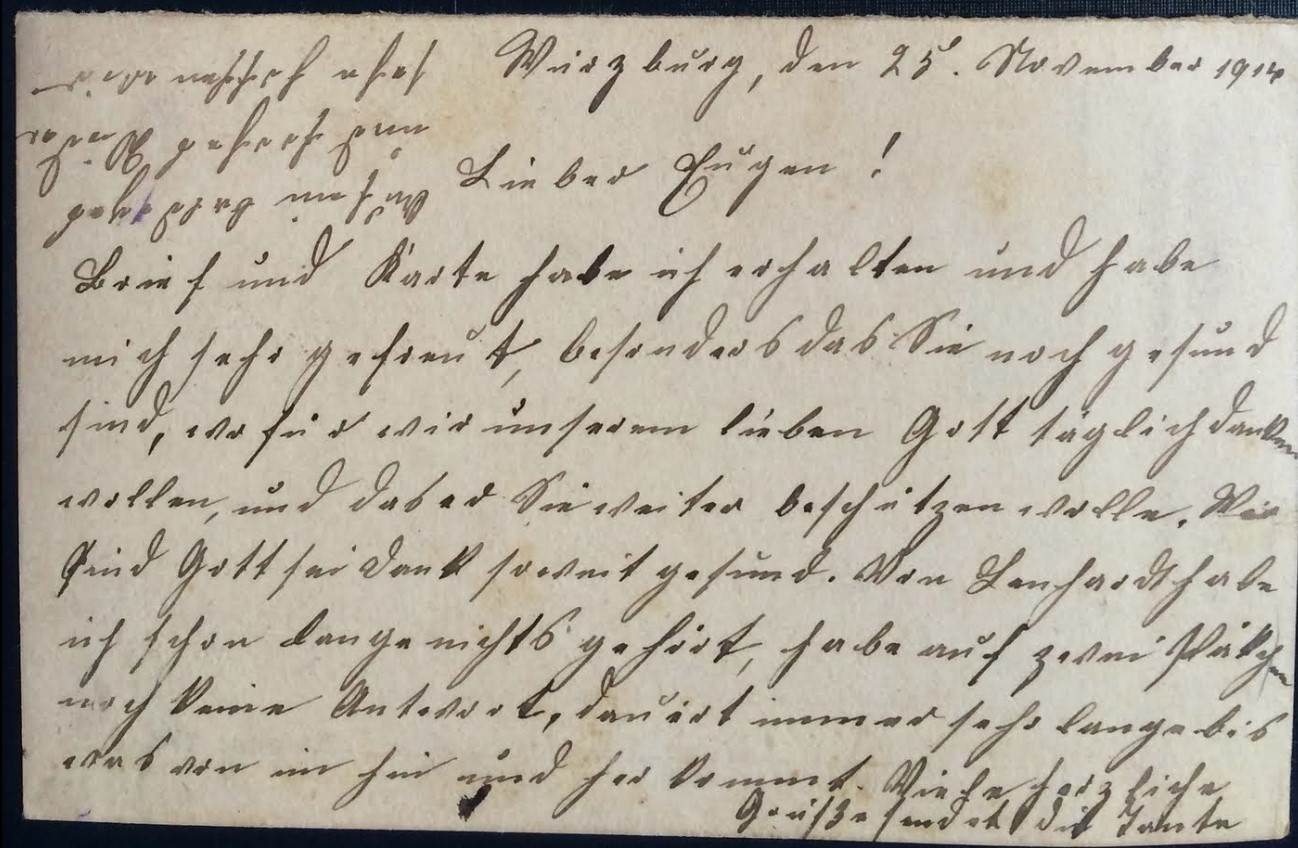 Würzburg, den 25. November 1914
Lieber Eugen!
Brief und Karte habe ich erhalten und habe
mich sehr gefreut, besonders das Sie noch gesund
sind, wofür wir unserem lieben Gott täglich danken
wollen, und das er Sie weiter beschützen wolle. Wir
sind Gott sei Dank soweit gesund. Von Lenhardt habe
ich schon lange nichts gehört, habe auf zwei Päkchen
noch keine Antwort, dauert immer sehr lange bis
was von im hin und her kommt. Viele herzliche
Grüße sendet die Tante